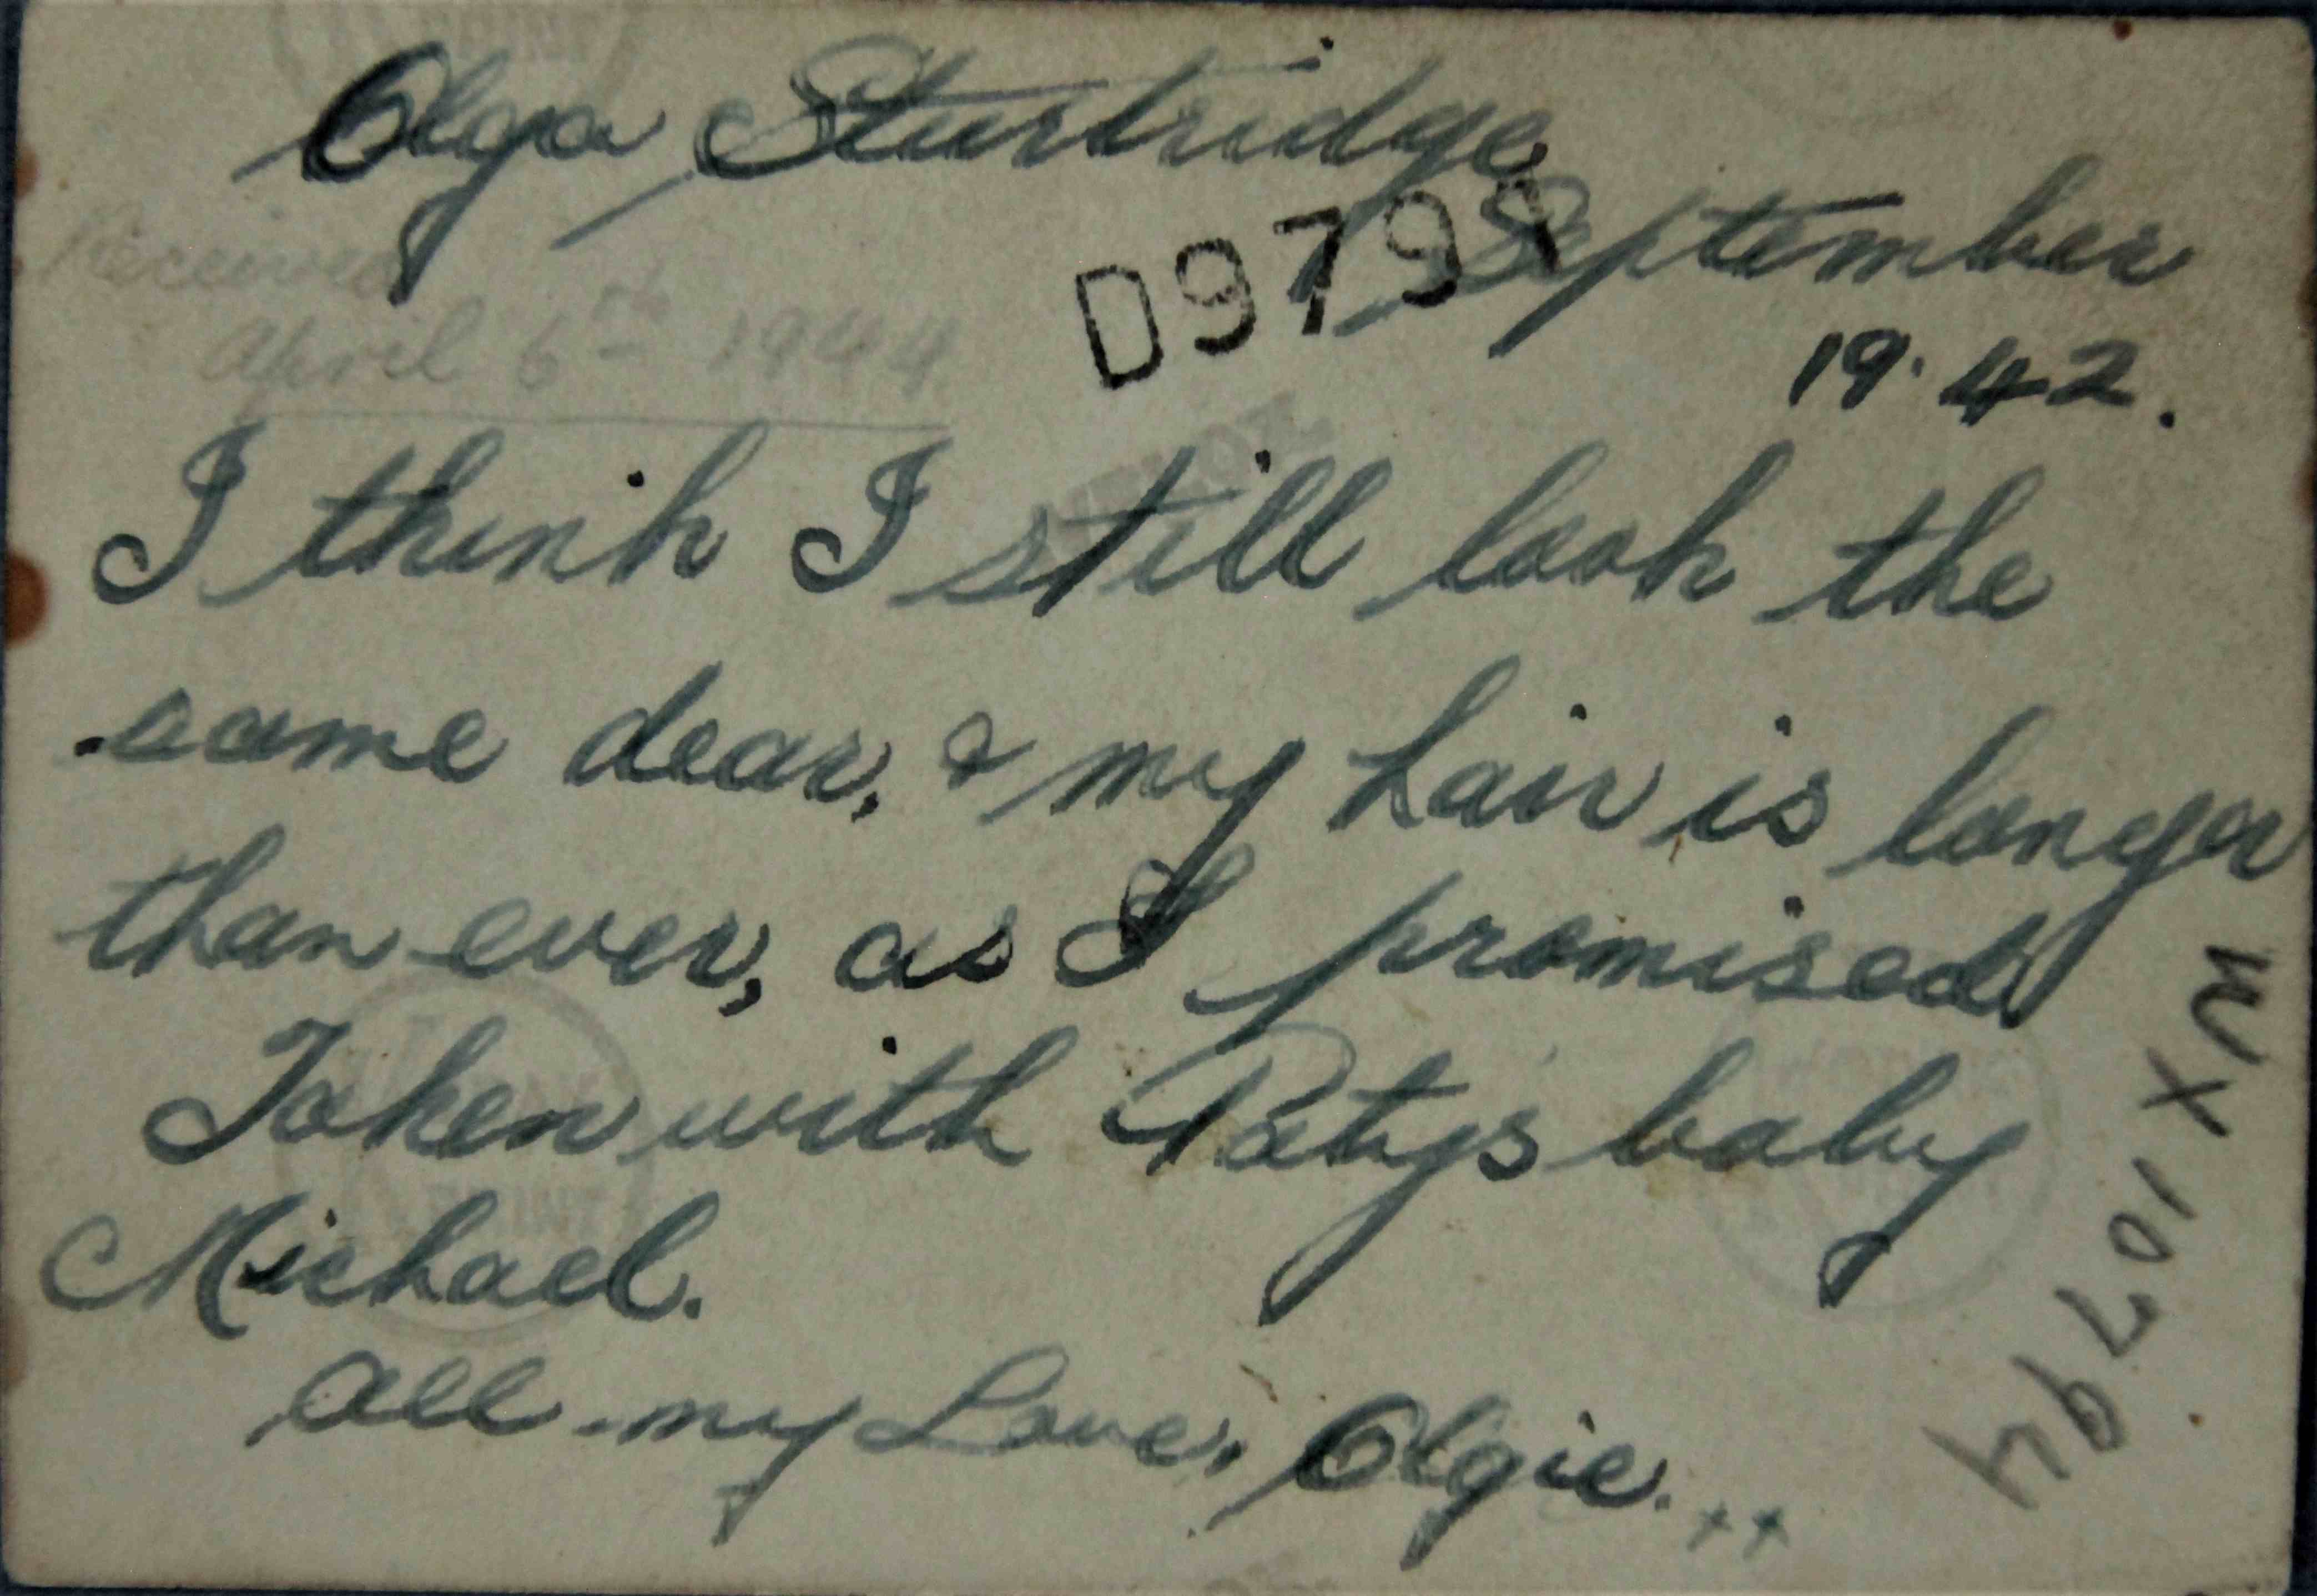 Olga Sturtridge
D9791
September
19.42.
Received
April 6th 1944
I think I still look the
same dear, & my hair is longer
than ever, as I promised
Taken with Patys baby
Michael.
All my Love, Olgie. xx
10794